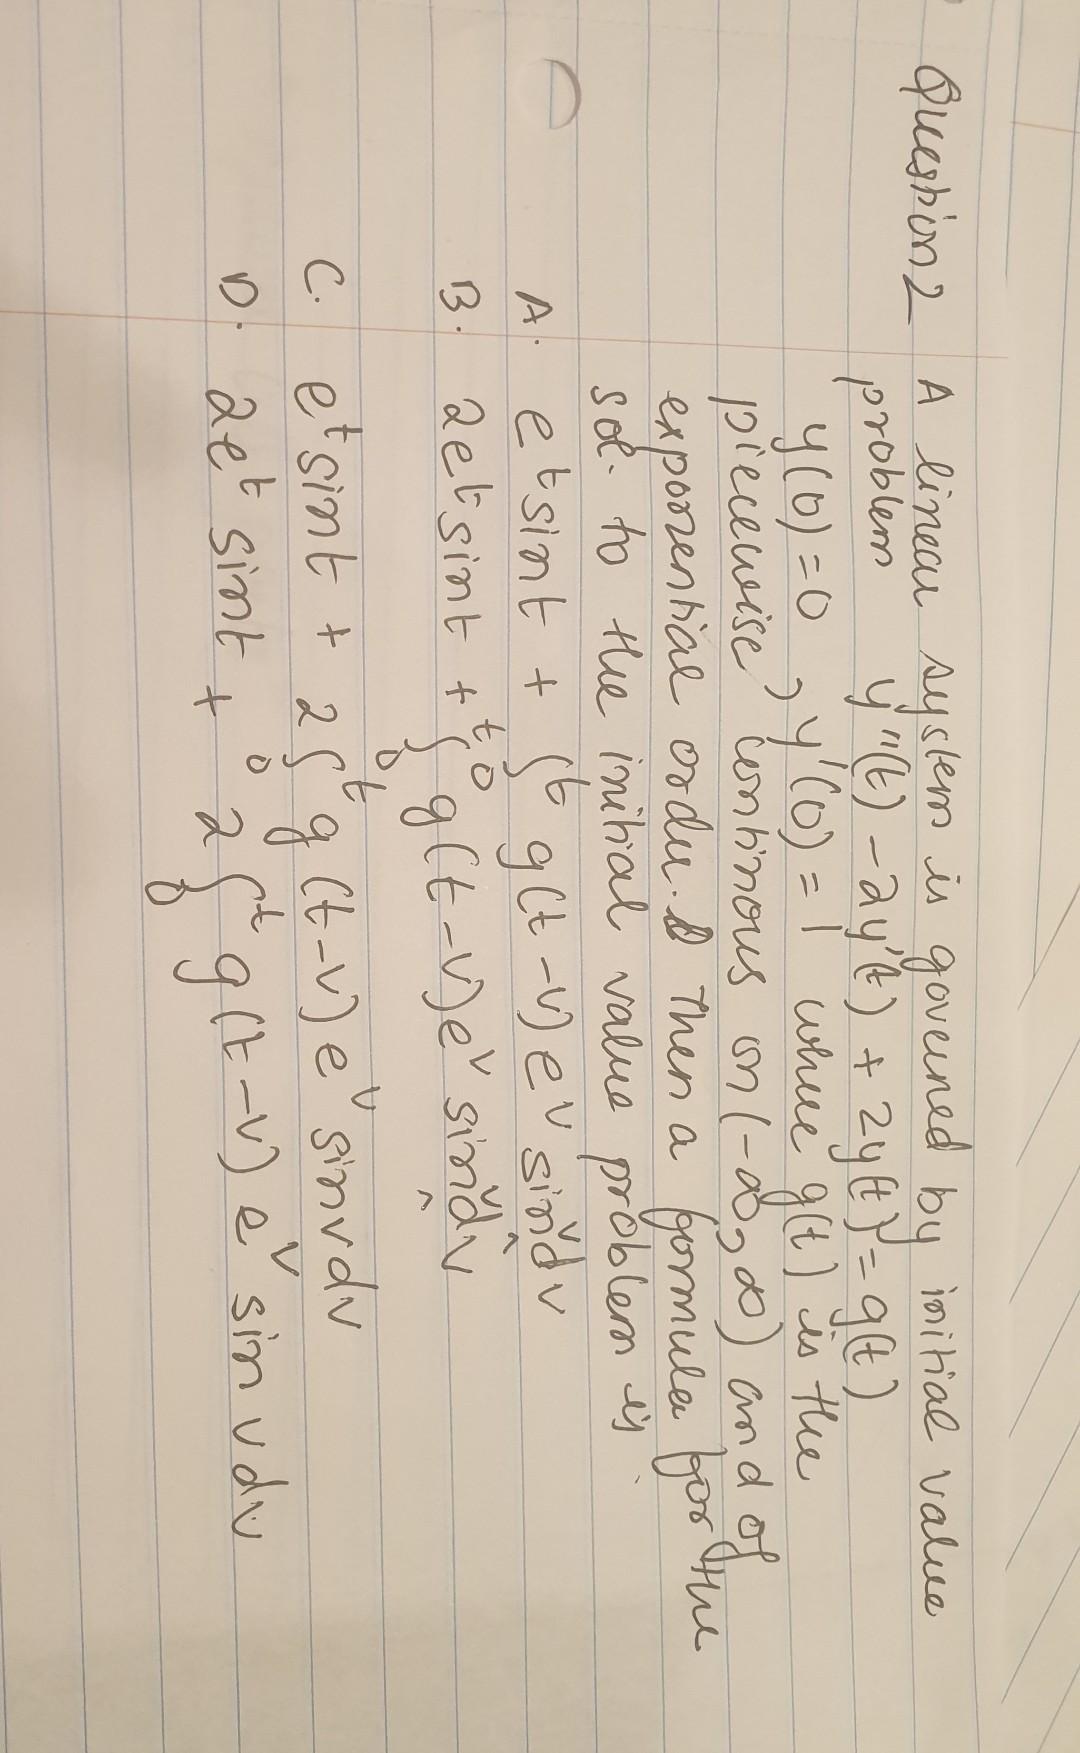 Question 2 A linear system is governed by initial value
problem y''(t) - 2y'(t) + 2y(t) = g(t)
y(0) = 0, y'(0) = 1 where g(t) is the
piecewise continous on (-∞, ∞) and of
exponential order. Then a formula for the
sol. to the initial value problem is
A. e^t sint + ∫_0^t g(t-v) e^v sinv dv
B. 2e^t sint + ∫_0^t g(t-v) e^v sinv dv
C. e^t sint + 2∫_0^t g(t-v) e^v sinv dv
D. 2e^t sint + 2∫_0^t g(t-v) e^v sin v dv